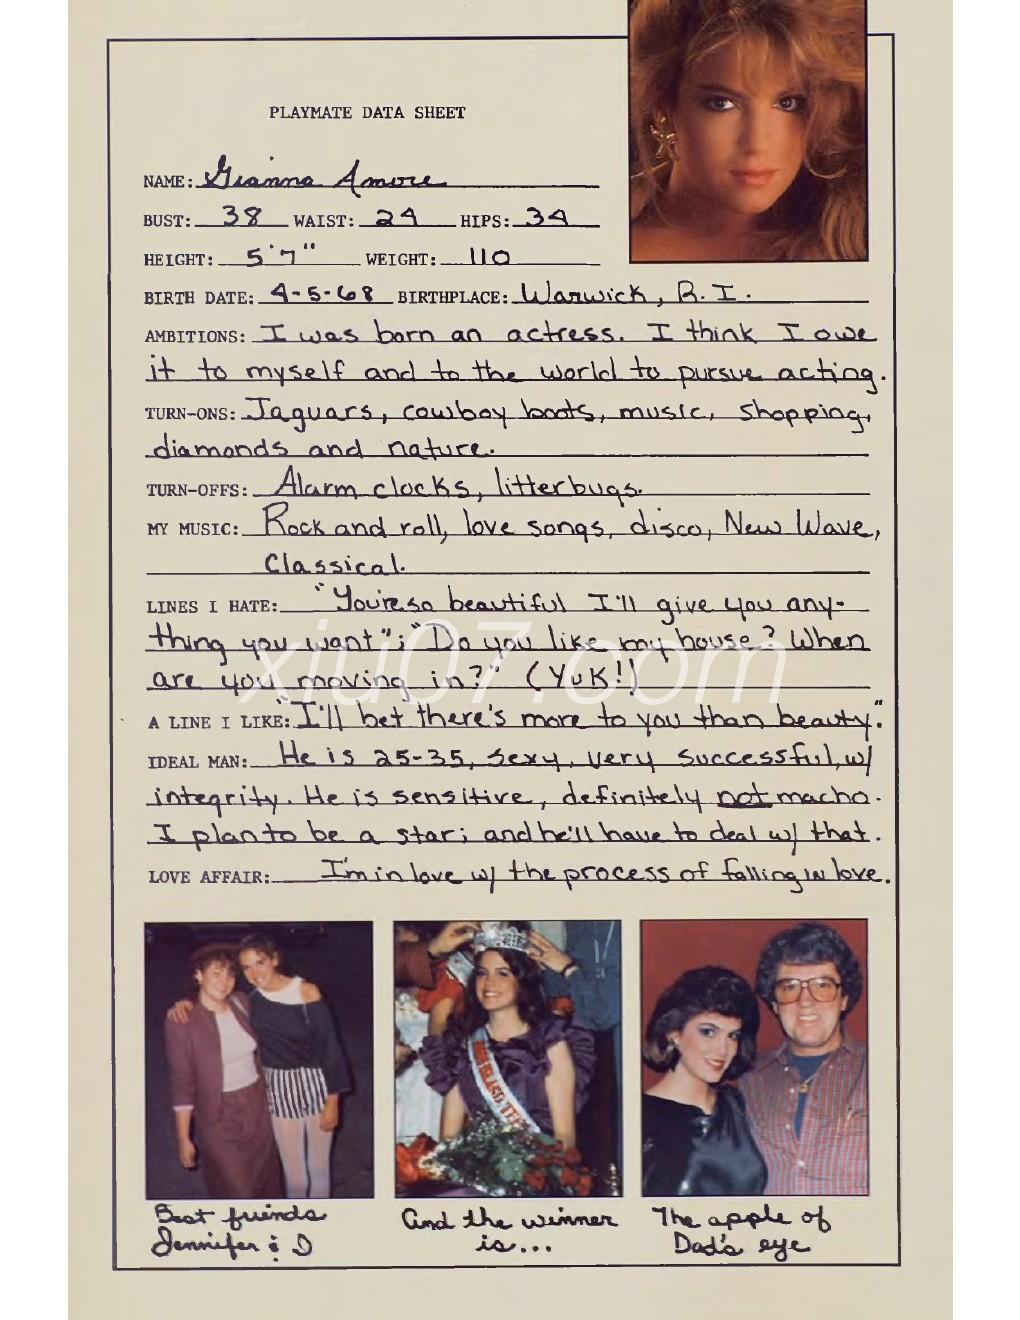 PLAYMATE DATA SHEET
NAME: Gianna Amore
BUST: 38 WAIST: 24 HIPS: 34
HEIGHT: 5'7" WEIGHT: 110
BIRTH DATE: 4-5-68 BIRTHPLACE: Warwick, R.I.
AMBITIONS: I was born an actress. I think I owe
it to myself and to the world to pursue acting.
TURN-ONS: Jaguars, cowboy boots, music, shopping,
diamonds and nature.
TURN-OFFS: Alarm clocks, litterbugs.
MY MUSIC: Rock and roll, love songs, disco, New Wave,
Classical.
LINES I HATE: "You're so beautiful I'll give you any-
thing you want"; "Do you like my house? When
are you moving in?" (YUK!)
xiu07.com
A LINE I LIKE: "I'll bet there's more to you than beauty."
IDEAL MAN: He is 25-35, sexy, very successful, w/
integrity. He is sensitive, definitely not macho.
I plan to be a star; and he'll have to deal w/ that.
LOVE AFFAIR: I'm in love w/ the process of falling in love.
Best friends
Jennifer & I
And the winner
is...
The apple of
Dad's eye